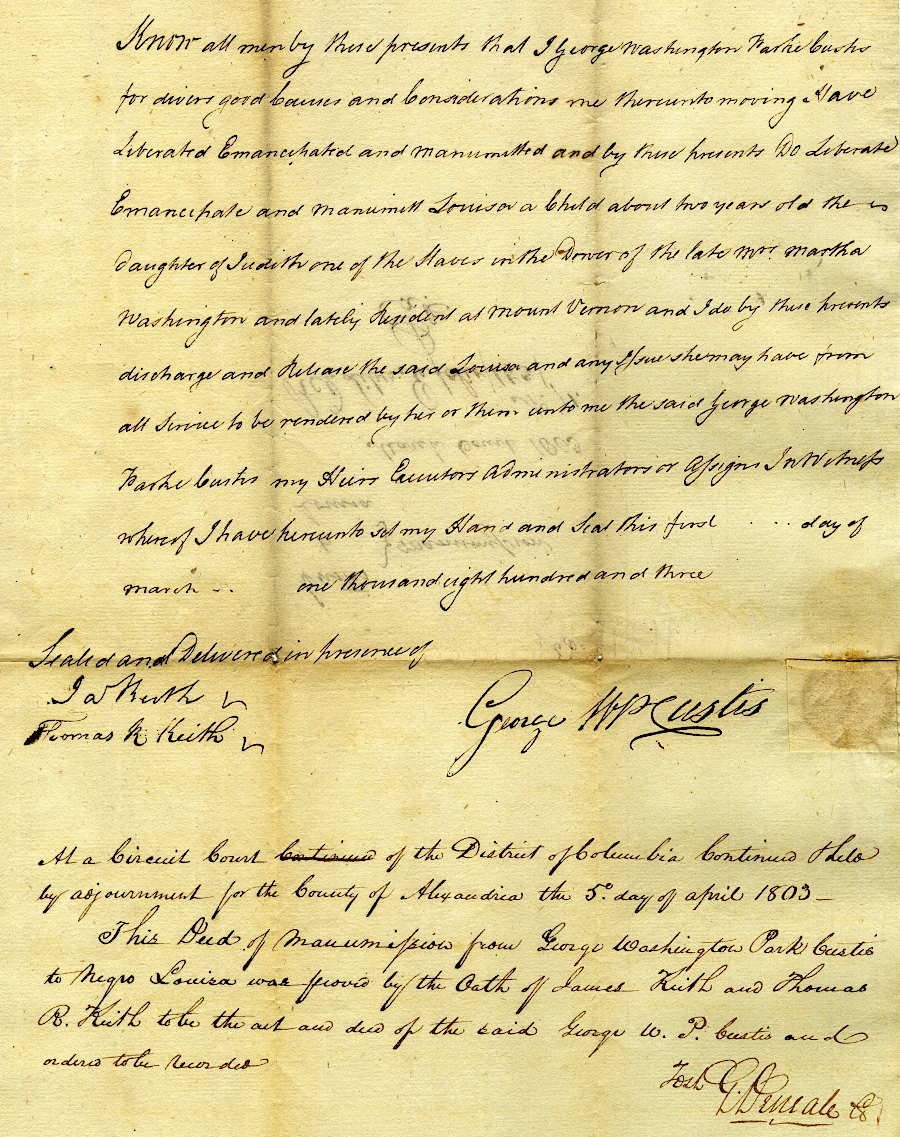 Know all men by these presents that I George Washington Parke Custis
for divers good Causes and Considerations me thereunto moving Have
Liberated Emancipated and manumitted and by these presents Do Liberate
Emancipate and manumitt Louisa a Child about two years old the
daughter of Judith one of the Slaves in the Dower of the late Mrs. martha
Washington and lately Resident at Mount Vernon and I do by these presents
discharge and Release the said Louisa and any Issue she may have from
all Service to be rendered by her or them unto me the said George Washington
Parke Custis my Heirs Executors Administrators or Assigns In Witness
whereof I have hereunto set my Hand and Seal this first .... day of
march .. one thousand eight hundred and three
Sealed and Delivered in presence of
Jas Keith
Thomas R Keith
George WP Custis
At a Circuit Court Continued of the District of Columbia Continued Held
by adjournment for the County of Alexandria the 5th. day of april 1803 —
This Deed of Manumission from George Washington Park Custis
to Negro Louisa was proved by the Oath of James Keith and Thomas
R. Keith to be the act and deed of the said George W. P. Custis and
ordered to be Recorded
Test
G. Deneale CC